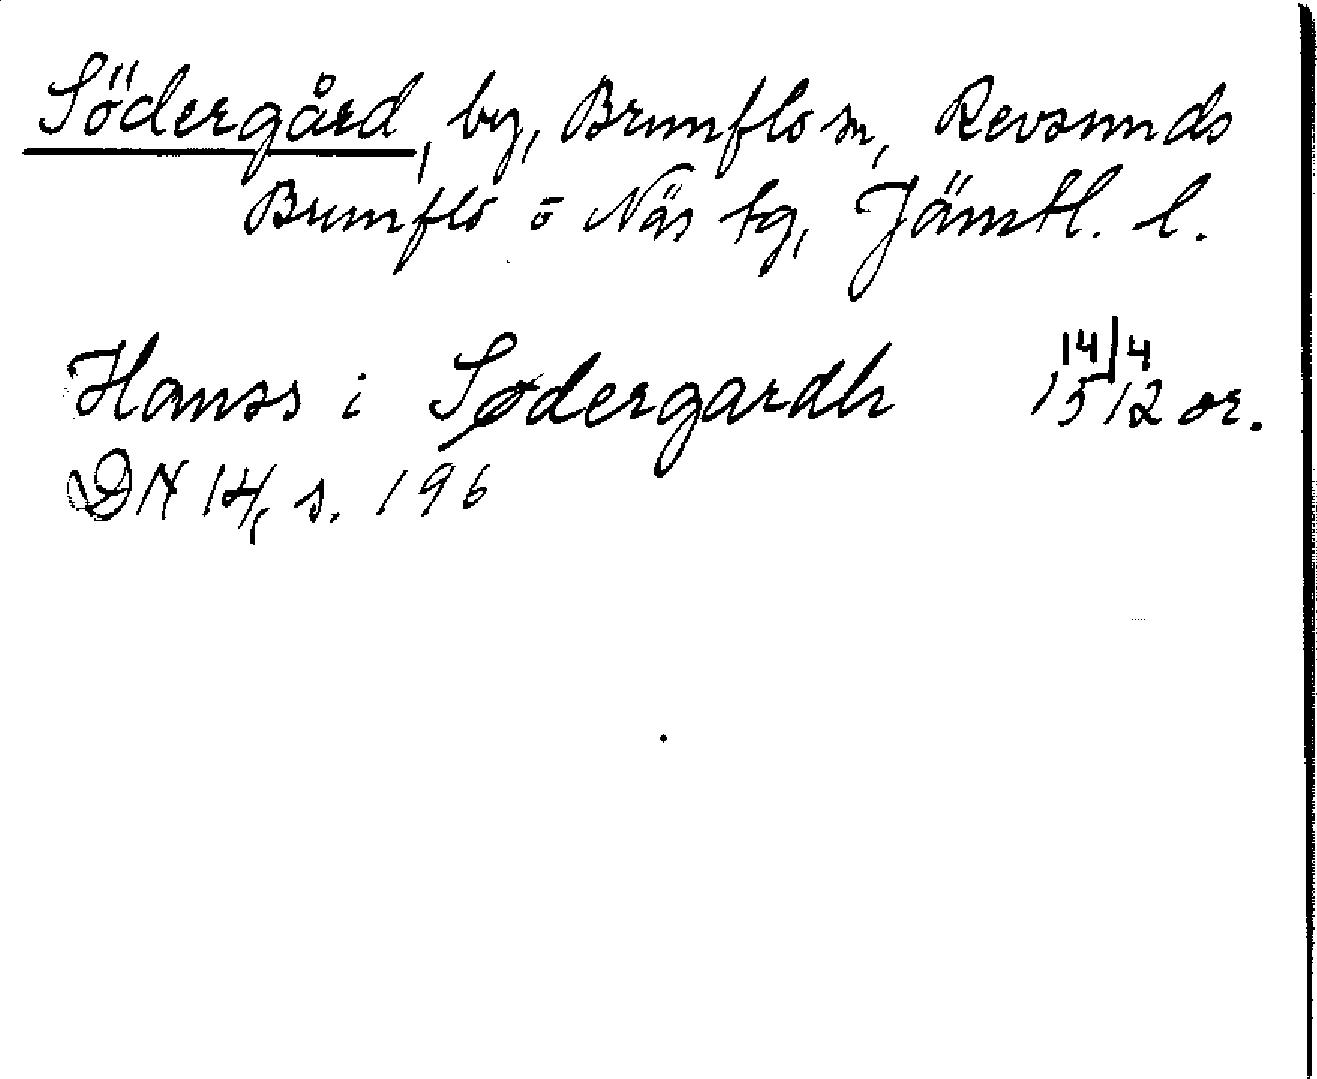 Södergård, by, Brunflo sn, Revsunds
Brunflo o Näs tg, Jämtl. l.
Hanss i Sødergardh 14/4 1512 or.
DN 14, s. 196